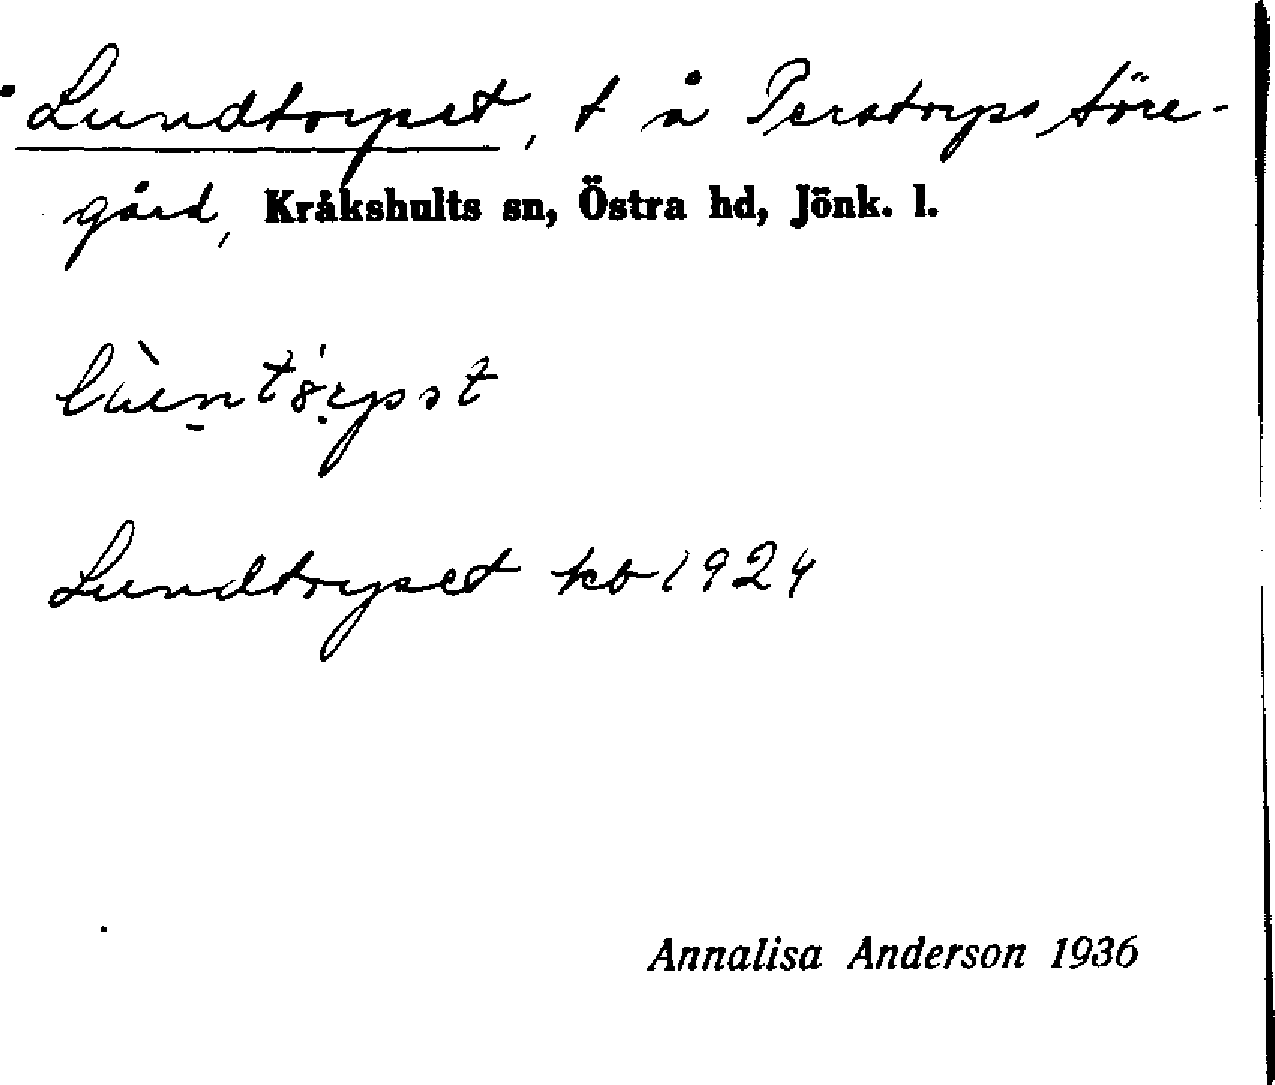 Lundtorpet, t å Perstorps före-
gård, Kråkshults sn, Östra hd, Jönk. l.
Lundtorpet kb 1924
Annalisa Anderson 1936